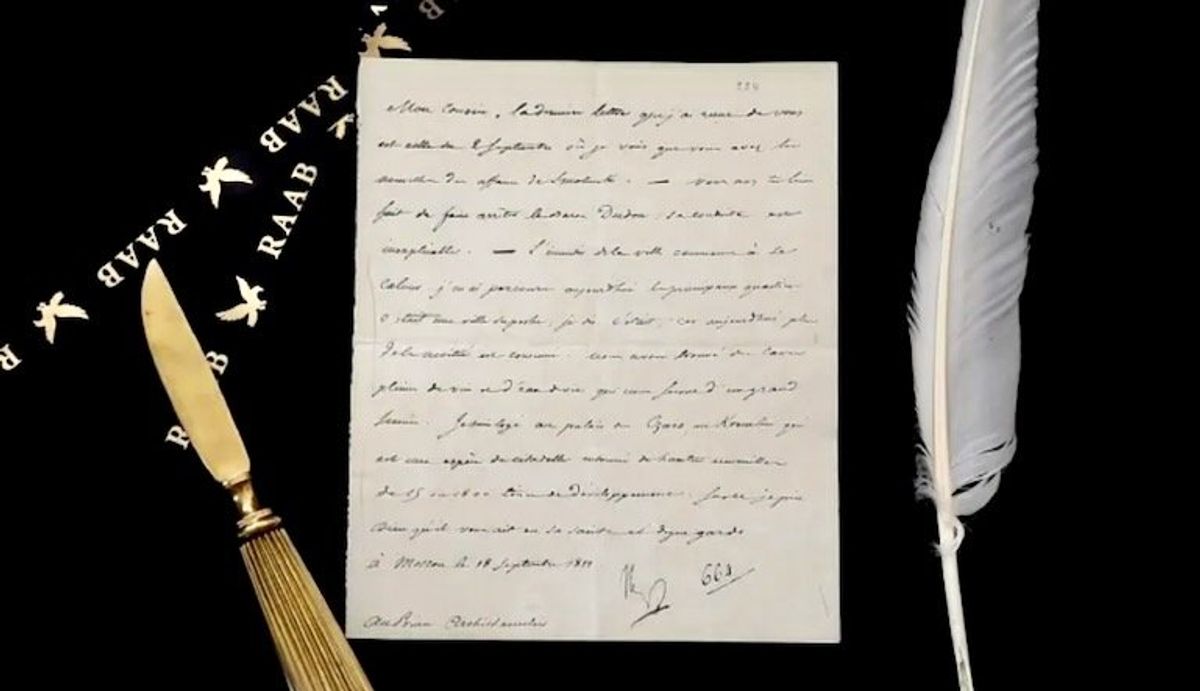 RAAB
RAAB
RAAB
224
Mon Cousin, la dernière lettre que j'ai reçue de vous
est celle du 2 Septembre où je vois que vous avez les
nouvelles des affaires de Smolensk. — vous avez très bien
fait de faire arrêter le baron Dudon, sa conduite est
inexplicable. — L'incendie de la ville commence à se
calmer. j'en ai parcouru aujourd'hui les principaux quartiers
C'était une ville superbe, je dis c'était, car aujourd'hui plus
de la moitié est consumée. nous avons trouvé des caves
pleines de vin et d'eau de vie qui nous seront d'un grand
secours. Je suis logé au palais des Czars, au Kremlin qui
est une espèce de citadelle entourée de hautes murailles
de 15 à 1800 toises de développement. Sur ce je prie
Dieu qu'il vous ait en sa sainte et digne garde
à Moscou le 18 Septembre 1812
Np
664
Au Prince Archichancelier